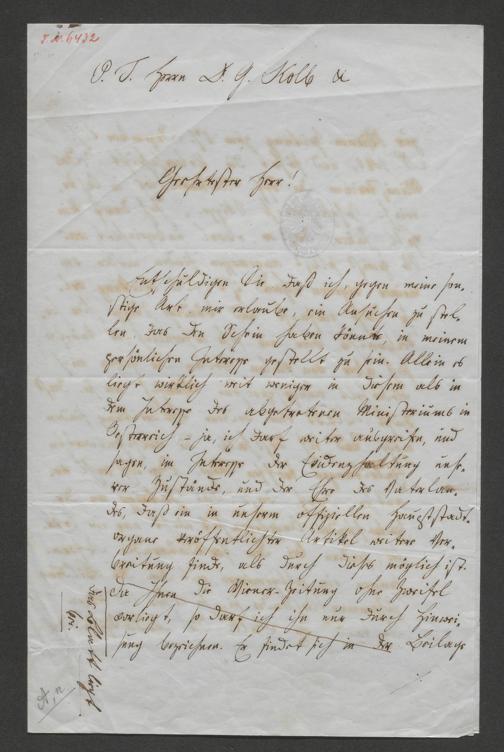 J.N. 6432
P. T. Herrn D. G. Kolb &
Geehrtester Herr!
Entschuldigen Sie daß ich, gegen meine son-
stige Art, mir erlaube, ein Ansuchen zu stel-
len, das den Schein haben könnte, in meinem
persönlichen Interesse gestellt zu sein. Allein es
liegt wirklich weit weniger in diesem als in
dem Interesse des abgetretenen Ministeriums in
Oesterreich – ja, ich darf weiter ausgreifen, und
sagen, im Interesse der Evidenzhaltung unse-
rer Zustände, und der Ehre des Vaterlan-
des, daß ein in unserm offiziellen Hauptstadt-
organe veröffentlichter Artikel weitere Ver-
breitung finde, als durch dieses möglich ist.
Da Ihnen die Wiener-Zeitung ohne Zweifel
vorliegt, so darf ich ihn nur durch Hinwei-
sung bezeichnen. Er findet sich in der Beilage
Das Blatt liegt
bei.